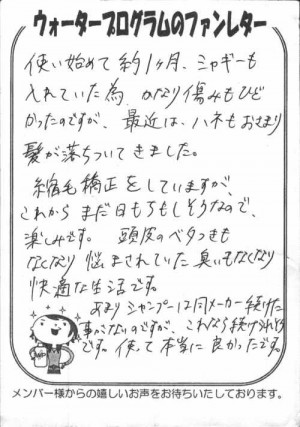 ウォータープログラムのファンレター
使い始めて約1ヶ月、シャギーも
入れていた為、かなり傷みもひど
かったのですが、最近は、ハネもおさまり
髪が落ちついてきました。
縮毛矯正をしていますが、
これからまだ日もちもしそうなので、
楽しみです。頭皮のベタつきも
なくなり悩まされていた臭いもなくなり
快適な生活です。
あまりシャンプーは同メーカー続けた
事がないのですが、これなら続けられそう
です。使って本当に良かったです。
メンバー様からの嬉しいお声をお待ちいたしております。